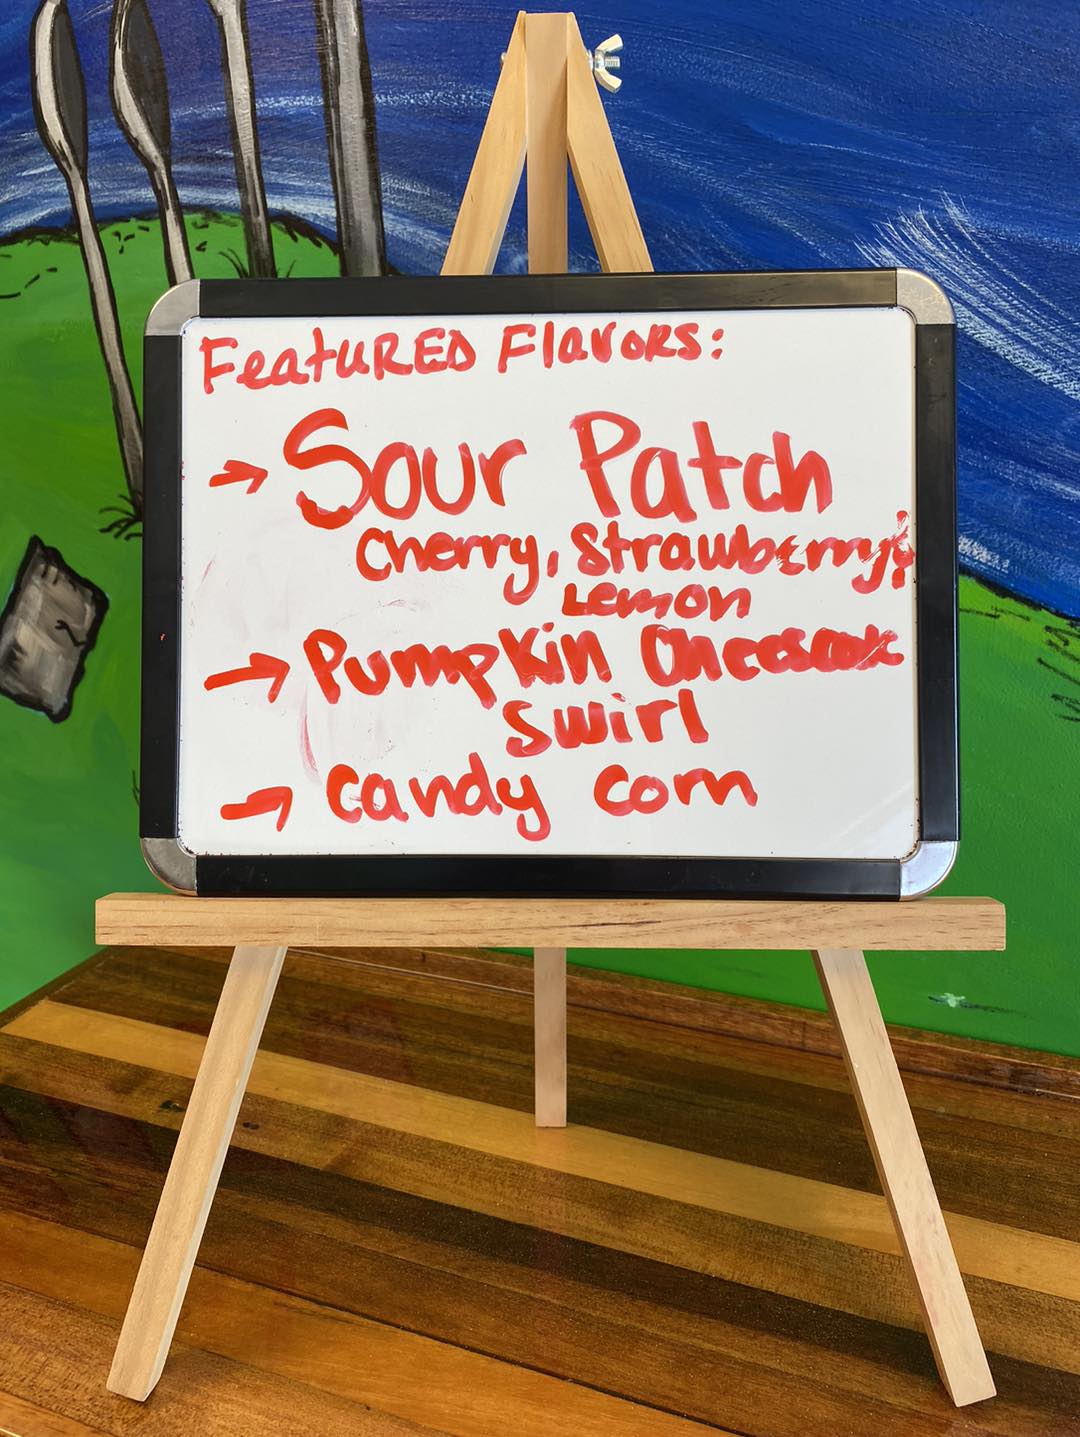 FeatuRED FlavoRs:
→ Sour Patch
Cherry, Strawberry &
Lemon
→ Pumpkin Cheesecake
Swirl
→ Candy corn